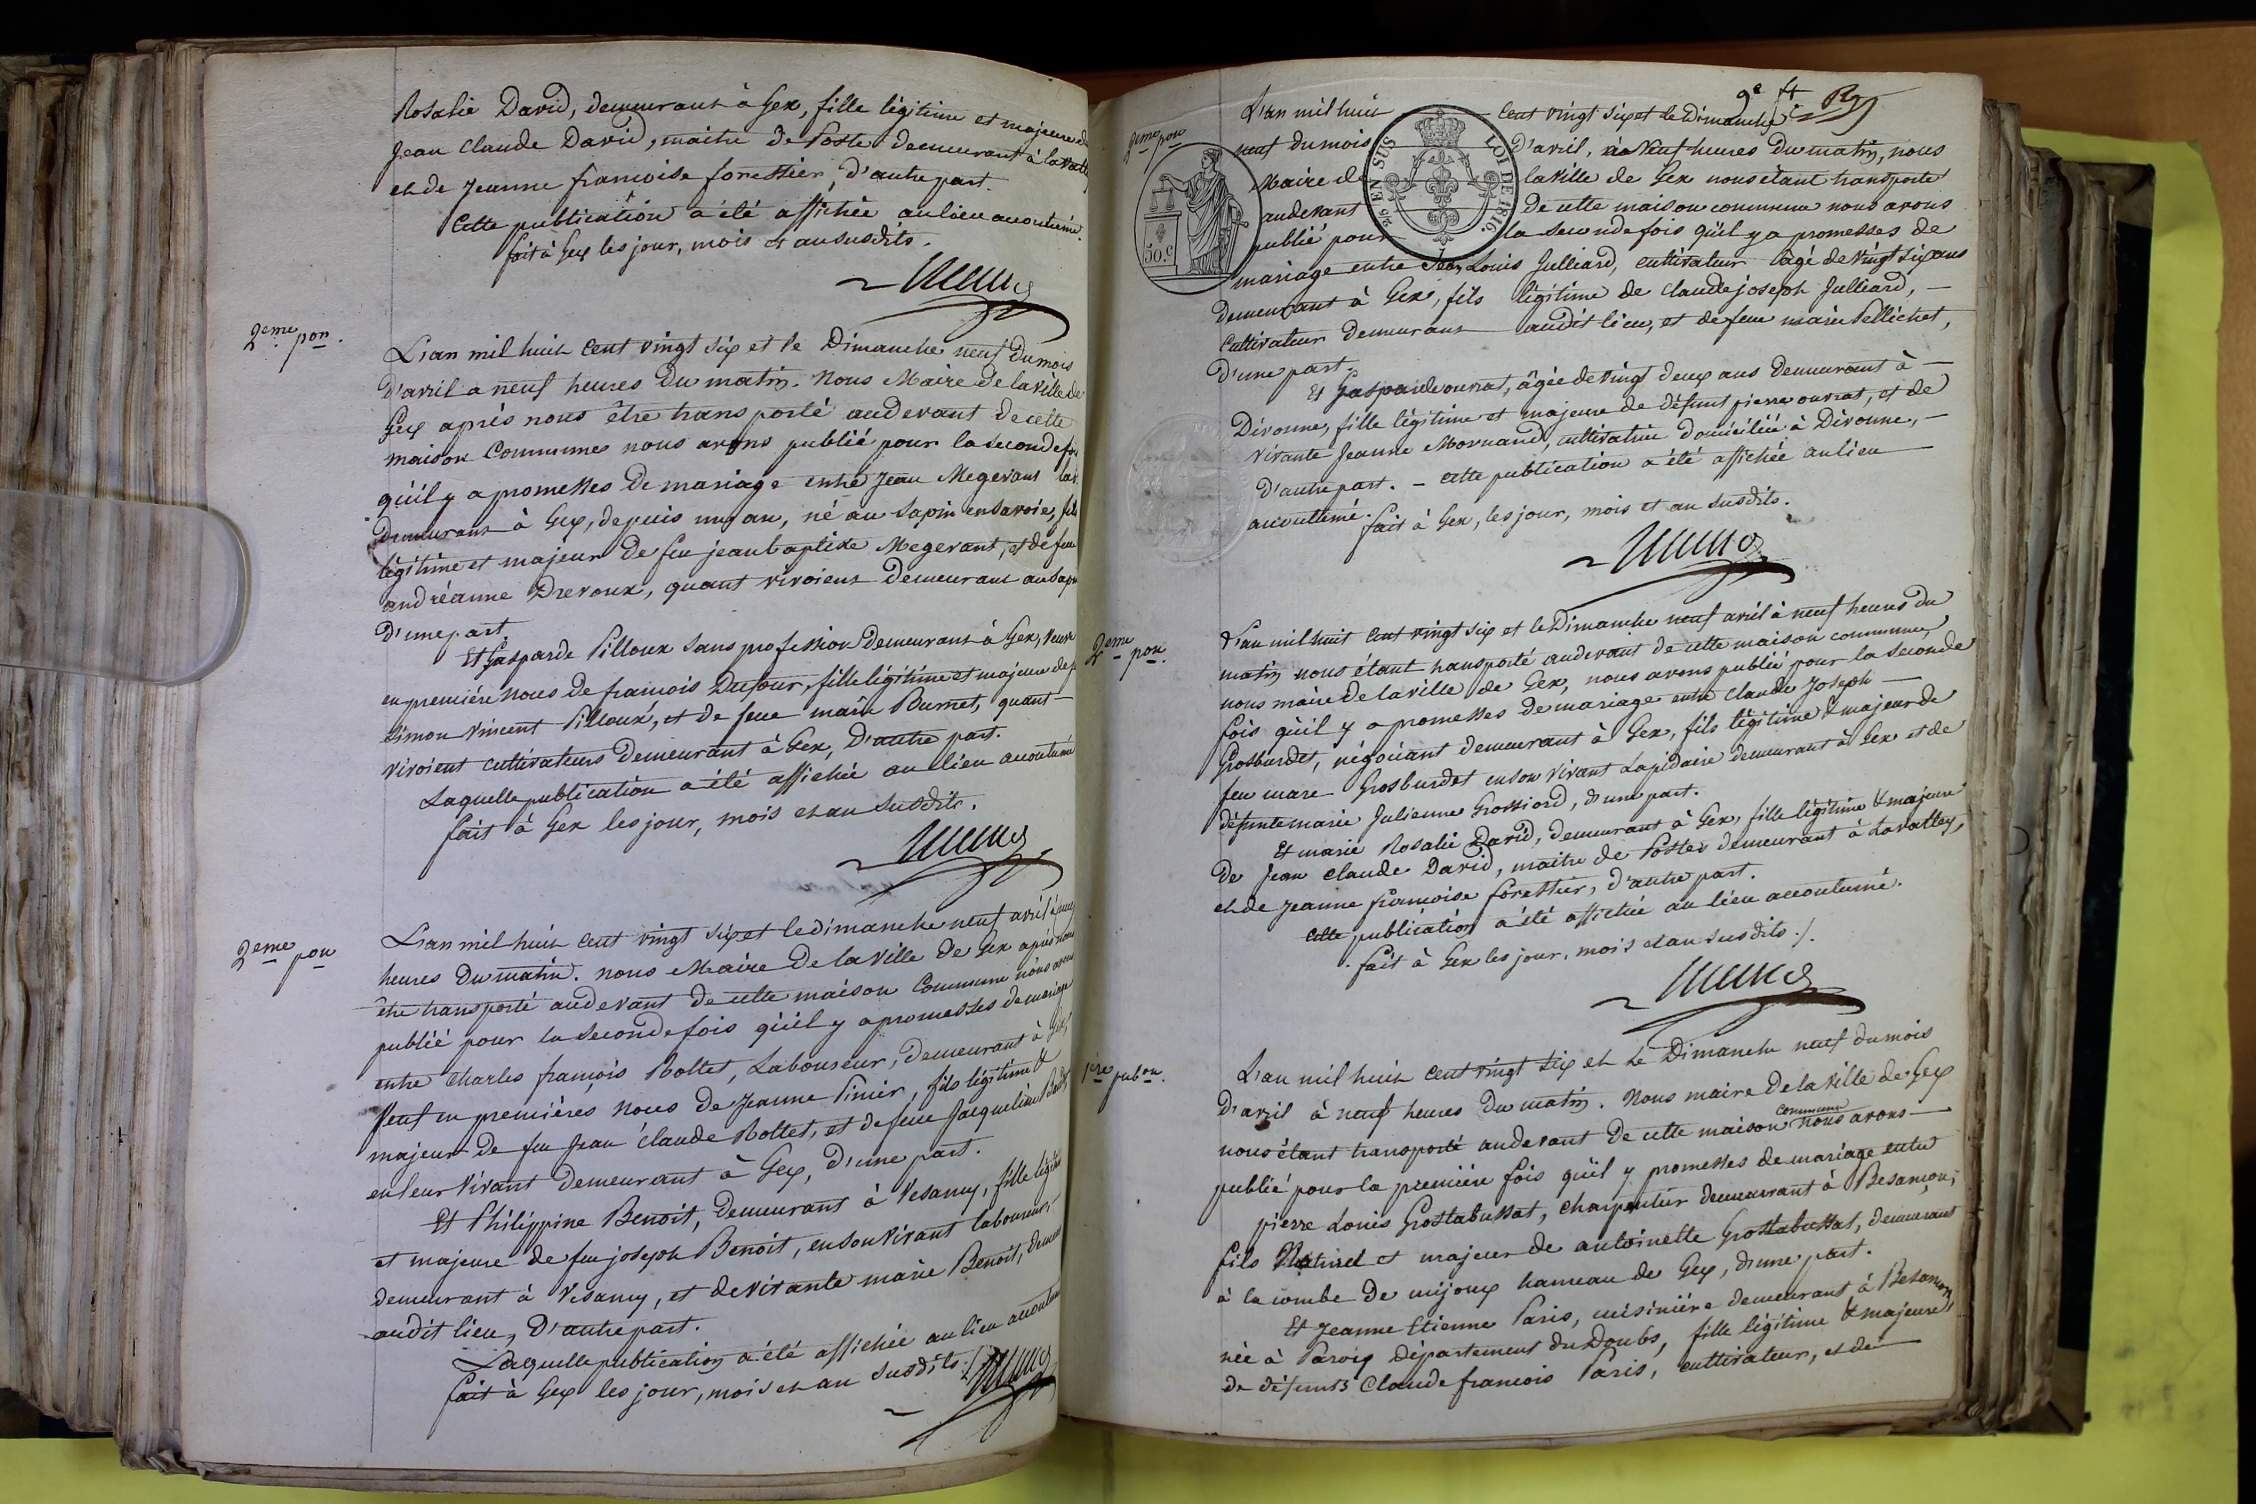 Rosalie David, demeurant à Gex, fille légitime et majeure de
Jean Claude David, maitre de Poste demeurant à la Vatte
et de Jeanne françoise forestier, d'autre part.
Cette publication a été affichée au lieu accoutumé.
fait à Gex les jour, mois et an susdits.
2eme pon.
L'an mil huit cent vingt six et le Dimanche neuf du mois
d'avril a neuf heures du matin. Nous Maire de la ville de
Gex après nous être transporté au devant de cette
maison Commune nous avons publié pour la seconde fois
qu'il y a promesses de mariage entre Jean Megevant
demeurant à Gex, depuis un an, né au Sapin en Savoie, fils
légitime et majeur de feu jean baptiste Megevant, et de feue
andréanne Drevoux, quant vivoient demeurant au Sapin
d'une part.
Et Gasparde Pilloux sans profession Demeurant à Gex, veuve
en première Noces de françois Dufour, fille légitime et majeure de
Simon Vincent Pilloux, et de feue marie Burnet, quant
vivoient cultivateurs Demeurant à Gex, D'autre part.
Laquelle publication a été affichée au lieu accoutumé
fait à Gex les jour, mois et an susdits.
2eme pon
L'an mil huit cent vingt six et le dimanche neuf avril à neuf
heures du matin. nous Maire de la Ville de Gex après nous
être transporté au devant de cette maison Commune nous avons
publié pour la seconde fois qu'il y a promesses de mariage
entre Charles françois Rottet, Laboureur, demeurant à Gex,
Veuf en premières Noces de Jeanne Pinier, fils légitime &
majeur de feu Jean Claude Rottet, et de feue Jacqueline
en leur vivant demeurant à Gex, D'une part.
Et Philippine Benoit, demeurant à Vesancy, fille légitime
et majeure de feu joseph Benoit, en son vivant laboureur,
demeurant à Vesancy, et de vivante marie Benoit, demeurant
audit lieu, D'autre part.
Laquelle publication a été affichée au lieu accoutumé
fait à Gex les jour, mois et an susdits.
9e ft
2eme pon
L'an mil huit cent vingt six et le Dimanche
neuf du mois d'avril, à Neuf heures du matin, nous
Maire de la ville de Gex nous étant transporté
au devant de cette maison commune nous avons
publié pour la seconde fois qu'il y a promesses de
25 EN SUS
LOI DE 1816.
50.C
mariage entre Jean Louis Julliard, cultivateur âgé de vingt six ans
demeurant à Gex, fils légitime de Claude joseph Julliard,
Cultivateur demeurant audit lieu, et de feue marie Pellichet,
d'une part.
Et Gasparde ouvrat, âgée de vingt deux ans demeurant à
Divonne, fille légitime et majeure de défunt pierre ouvrat, et de
vivante Jeanne Mornand, cultivatrice domiciliée à Divonne,
d'autre part. - cette publication a été affichée au lieu
accoutumé.
fait à Gex, les jour, mois et an susdits.
2eme pon.
L'an mil huit cent vingt six et le Dimanche neuf avril à neuf heures du
matin nous étant transporté au devant de cette maison commune,
nous maire de la ville de Gex, nous avons publié pour la seconde
fois qu'il y a promesses de mariage entre Claude Joseph
Grosburdet, négociant demeurant à Gex, fils légitime & majeur de
feu marc Grosburdet en son vivant Lapidaire demeurant à Gex et de
défunte marie Julienne Grossiord, d'une part.
Et marie Rosalie David, demeurant à Gex, fille légitime & majeure
de Jean Claude David, maitre de Postes demeurant à Lavattey,
et de Jeanne françoise forestier, d'autre part.
Cette publication a été affichée au lieu accoutumé.
fait à Gex les jour, mois et an susdits ./.
1ere pubon.
L'an mil huit cent vingt six et le Dimanche neuf du mois
d'avril à neuf heures du matin. Nous maire de la ville de Gex
nous étant transporté au devant de cette maison commune nous avons
publié pour la première fois qu'il y promesses de mariage entre
pierre Louis Grostabussat, charpentier demeurant à Besançon,
fils Naturel et majeur de antoinette Grostabussat, demeurant
à la combe de mijoux hameau de Gex, d'une part.
Et Jeanne Etienne Paris, cuisinière demeurant à Besançon,
née à Paroix Département du Doubs, fille légitime & majeure
de défunts Claude françois Paris, cultivateur, et de